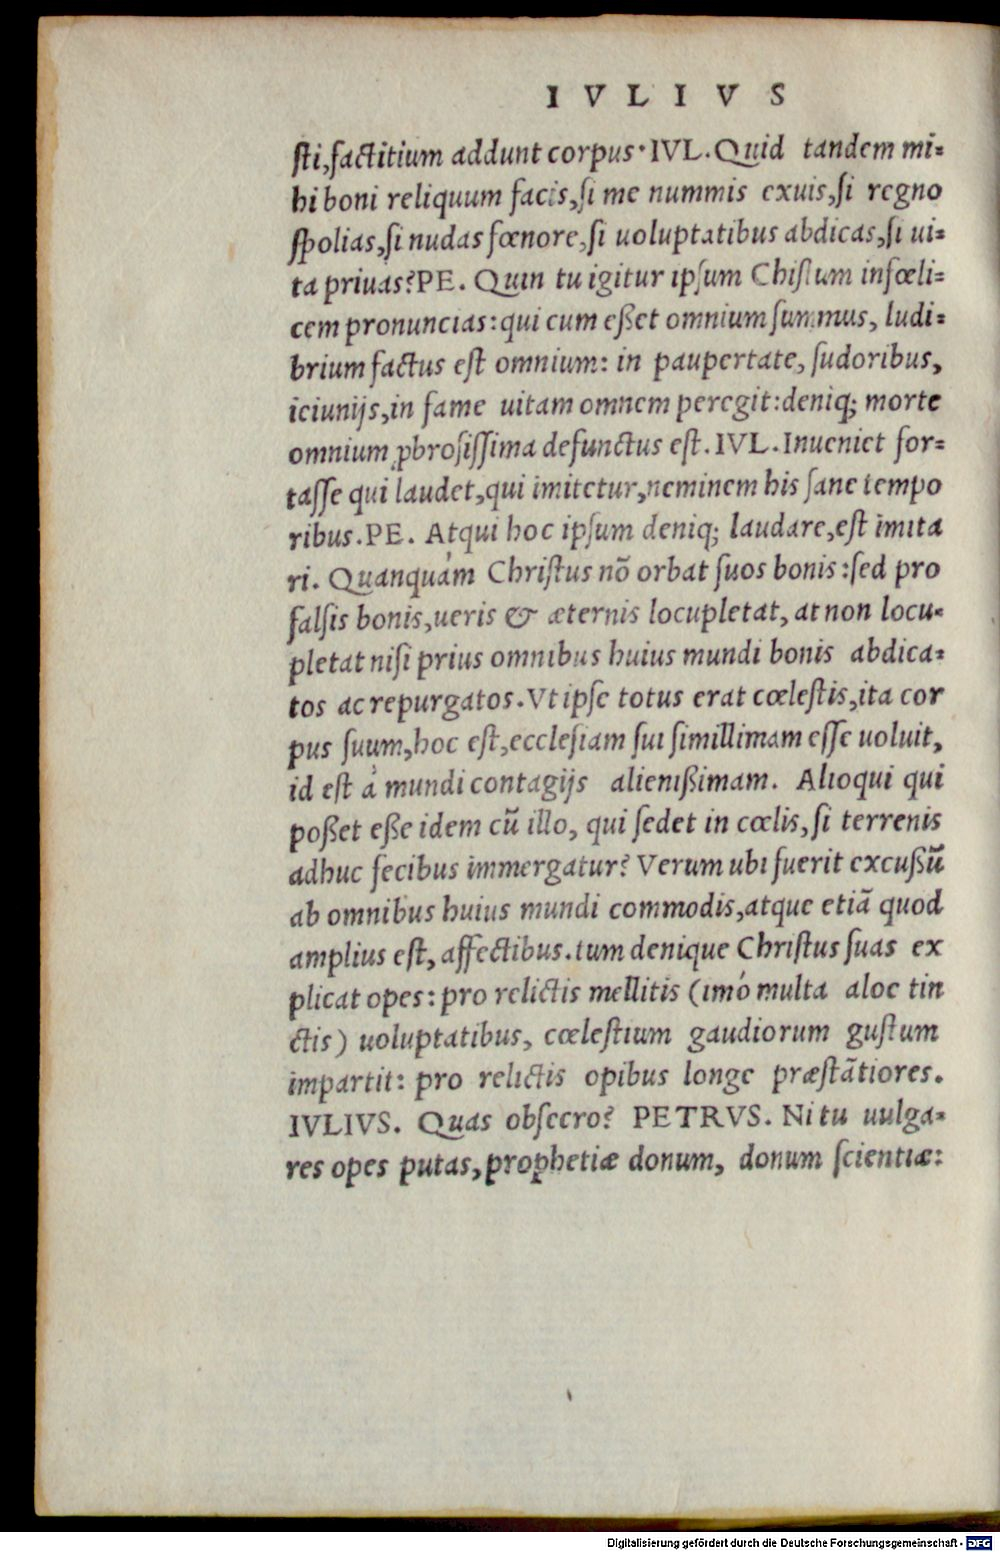 IVLIVS
sti,factitium addunt corpus·IVL.Quid tandem mi=
hi boni reliquum facis,si me nummis exuis,si regno
spolias,si nudas fœnore,si uoluptatibus abdicas,si ui=
ta priuas?PE. Quin tu igitur ipsum Chistum infœli=
cem pronuncias:qui cum eßet omnium summus, ludi=
brium factus est omnium: in paupertate, sudoribus,
ieiunijs,in fame uitam omnem peregit:deniq; morte
omnium ꝓbrosissima defunctus est.IVL.Inueniet for=
tasse qui laudet,qui imitetur,neminem his sane tempo
ribus.PE. Atqui hoc ipsum deniq; laudare,est imita
ri. Quanquàm Christus nõ orbat suos bonis:sed pro
falsis bonis,ueris & æternis locupletat, at non locu=
pletat nisi prius omnibus huius mundi bonis abdica=
tos ac repurgatos.Vt ipse totus erat cœlestis,ita cor
pus suum,hoc est,ecclesiam sui simillimam esse uoluit,
id est à mundi contagijs alienißimam. Alioqui qui
poßet eße idem cũ illo, qui sedet in cœlis,si terrenis
adhuc fecibus immergatur? Verum ubi fuerit excußũ
ab omnibus huius mundi commodis,atque etiã quod
amplius est, affectibus.tum denique Christus suas ex
plicat opes:pro relictis mellitis (imó multa aloe tin
ctis) uoluptatibus, cœlestium gaudiorum gustum
impartit: pro relictis opibus longe præstãtiores.
IVLIVS. Quas obsecro? PETRVS. Ni tu uulga=
res opes putas,prophetiæ donum, donum scientiæ:
Digitalisierung gefördert durch die Deutsche Forschungsgemeinschaft - DFG